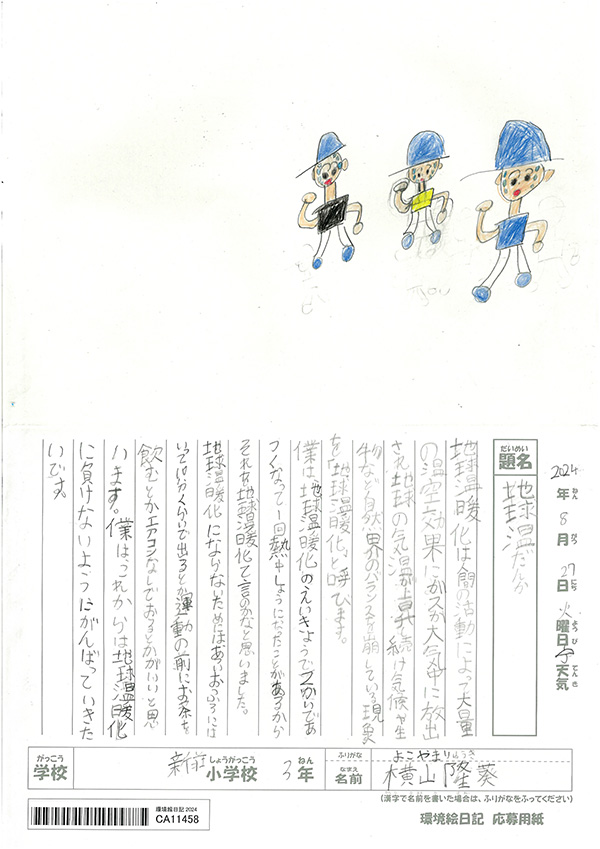 2024年8月27日火曜日 天気
ねん がつ にち ようび てんき
だいめい
題名
地球温だんか
地球温暖化は人間の活動によって大量
の温室効果にガスが大気中に放出
され地球の気温が上昇続け気候や生
物など自然界のバランスを崩している現象
を「地球温暖化」と呼びます。
僕は地球温暖化のえいきょうで
つくなって一回熱中しょうになったことがあるから
それを地球温暖化て言のかなと思いました。
地球温暖化にならないためには
運動の前にお茶を
飲むとかエアコンなしでおるとかがいいと思
います。僕はこれからは地球温暖化
に負けないようにがんばっていきた
いです。
がっこう
学校
しょうがっこう
小学校
ねん
3年
ふりがな
よこやまりゅうき
なまえ
名前
横山隆葵
(漢字で名前を書いた場合は、ふりがなをふってください)
環境絵日記2024
CA11458
環境絵日記 応募用紙